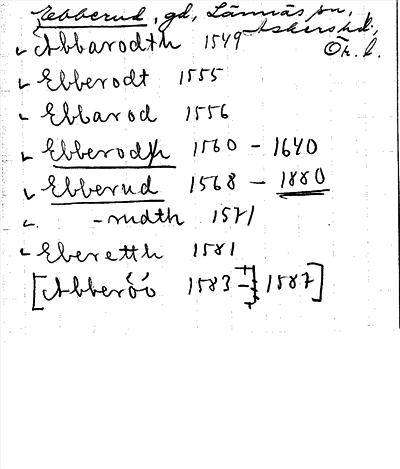 Ebberud, gd, Lännäs sn,
Askers hd,
Ök. l.
Abbarodth 1549
Ebberodt 1555
Ebbarod 1556
Ebberodh 1560 - 1640
Ebberud 1568 - 1880
-rudth 1571
Eberetth 1581
[Abberöö 1583 - 1587]